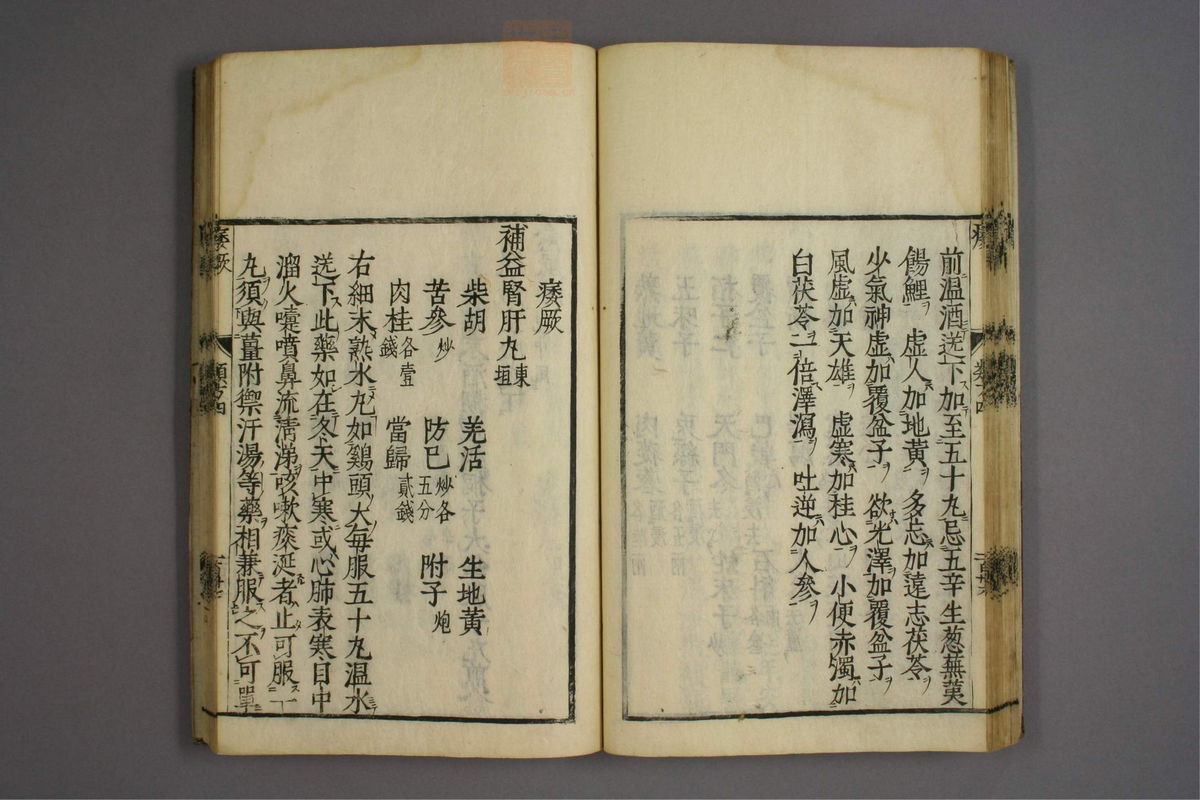 前温酒送下加至五十丸忌五辛生葱蕪荑
餳鯉　虚人加地黄　多忘加遠志茯苓
少氣神虚加覆盆子　欲光澤加覆盆子
風虚加天雄　虚寒加桂心　小便赤濁加
白茯苓一倍澤瀉　吐逆加人參
痿厥
補益腎肝丸東垣
柴胡　羌活　生地黄
苦參炒　防已炒各五分　附子炮
肉桂各壹錢　當歸貳錢
右細末熟水丸如鷄頭大每服五十丸温水
送下此藥如在冬天中寒或心肺表寒目中
溜火嚏噴鼻流清涕咳嗽痰涎者止可服一
丸須與薑附禦汗湯等藥相兼服之不可單
痿厥